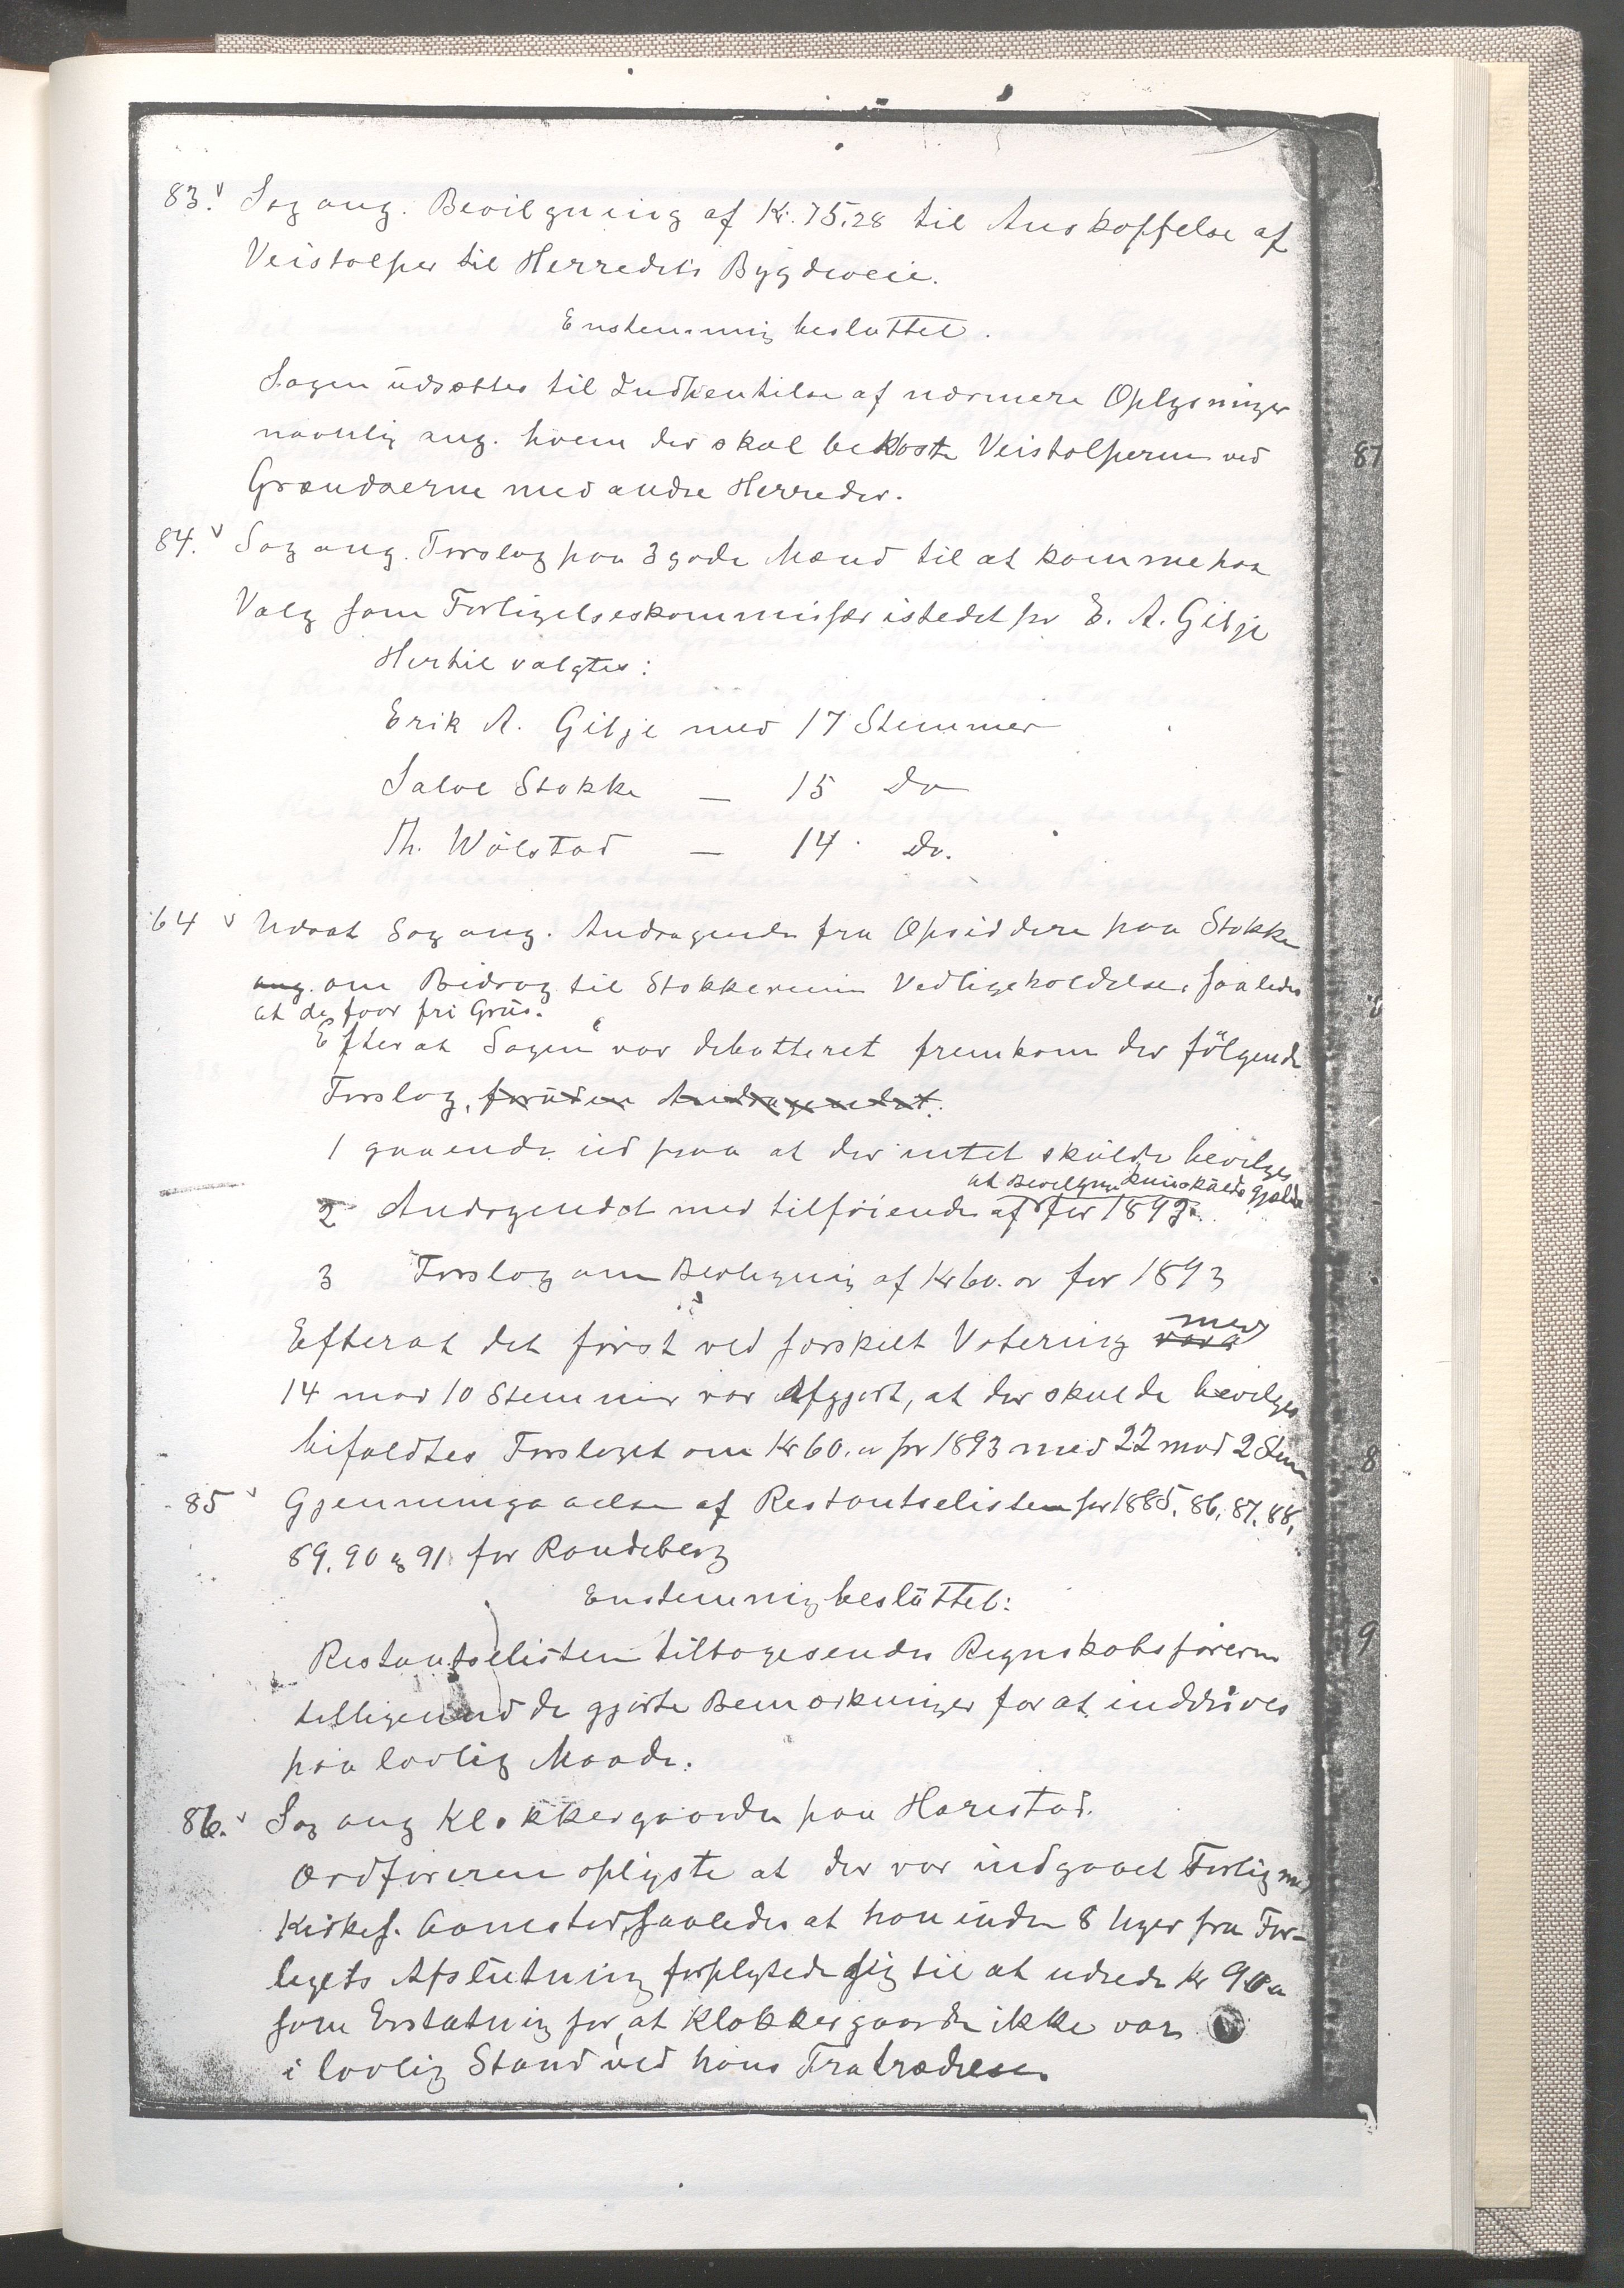 83. v Sag ang. Bevilgning af Kr. 75.28 til Anskaffelse af
Veistolper til Herredets Bygdeveie.
Enstemmig besluttet.
Sagen udsættes til Indhentelse af nærmere Oplysninger
navnlig ang. hvem der skal bekoste Veistolperne ved
Grændserne med andre Herreder.
84. v Sag ang. Forslag paa 3 gode Mænd til at komme paa
Valg som Forligelseskommissær istedet for E. A. Gilje
Hertil valgtes:
Erik A. Gilje med 17 Stemmer
Salve Stokke — 15 Do
Th. Wølstad — 14 Do.
64 v Udsat Sag ang. Andragende fra Opsiddere paa Stokke
ang. om Bidrag til Stokkeveiens Vedligeholdelse, saaledes
at de faar fri Grus.
Efterat Sagen var debatteret fremkom der følgende
Forslag, foruden Andragendet.
1 gaaende ud paa at der intet skulde bevilges
at Bevilgn. kun skulde gjælde
2 Andragendet med tilføiende af for 1893.
3 Forslag om Bevilgning af Kr 60.00 for 1893
Efterat det først ved særskilt Votering med
14 mod 10 Stemmer var Afgjort, at der skulde bevilges
bifaldtes Forslaget om Kr 60.00 for 1893 med 22 mod 2 Stem
85 v Gjennemgaaelse af Restantselisten for 1885, 86, 87, 88,
89, 90 og 91 for Randeberg
Enstemmig besluttet:
Restantselisten tilbagesendes Regnskabsføreren
tilligemed de gjorte Bemærkninger for at inddrives
paa lovlig Maade.
86. v Sag ang Klokkergaarden paa Harestad.
Ordføreren oplyste at der var indgaaet Forlig med
Kirkes. Aanestad, saaledes at han inden 8 Uger fra For-
ligets Afslutning forpligtede sig til at udrede Kr 90
som Erstatning for at Klokkergaarden ikke var
i lovlig Stand ved hans Fratrædelse.
87
8
9